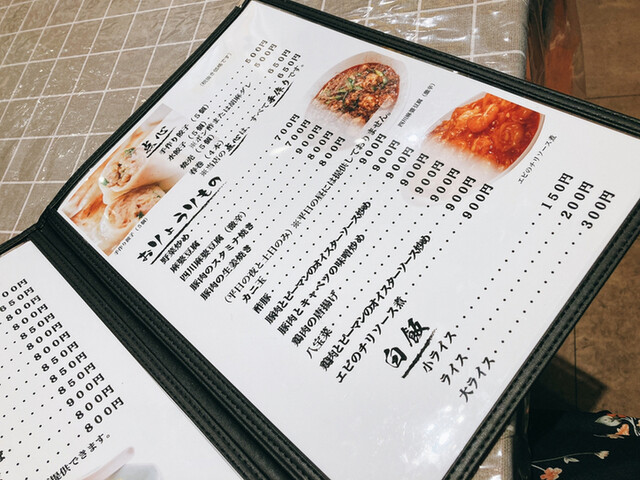 点心
手作り餃子（5個）‥‥500円
水餃子（5個）
※ポン酢または胡麻ダレ
焼売（5個）‥‥500円
春巻（4本）‥‥650円
※当店の点心は、すべて手作りです。
手作り餃子（5個）
四川麻婆豆腐（激辛）
エビのチリソース煮
おりょうりもの
野菜炒め‥‥700円
麻婆豆腐‥‥800円
四川麻婆豆腐（激辛）‥‥900円
豚肉のスタミナ焼き‥‥900円
豚肉の生姜焼き‥‥800円
（平日の夜と土日のみ）※平日の昼には提供しておりません。
カニ玉‥‥900円
酢豚‥‥900円
豚肉とピーマンのオイスターソース炒め‥‥900円
豚肉とキャベツの味噌炒め‥‥900円
鶏肉の唐揚げ‥‥900円
八宝菜‥‥900円
鶏肉とピーマンのオイスターソース炒め‥‥900円
エビのチリソース煮‥‥900円
白飯
小ライス‥‥150円
ライス‥‥200円
大ライス‥‥300円
850円
850円
800円
850円
850円
800円
900円
800円
提供できます。